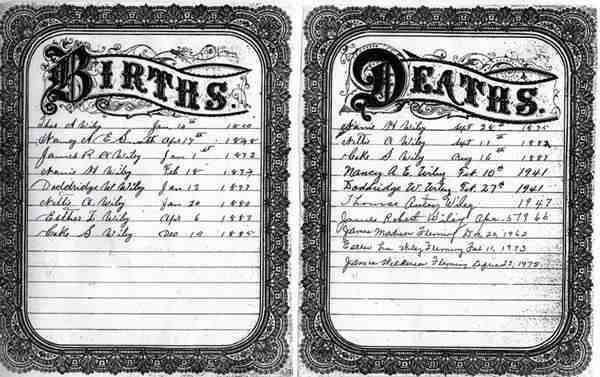 BIRTHS.
Thos A Wily Jan 10th 1850
Nancy A E Smith Apr 17th 1848
James R A Wily Jan 1st 1873
Nanie H Wily Feb 18 1874
Doddridge W Wily Jan 13
Nellie A Wily Jan 20 1880
Esther L Wily Apr 6 1883
Cake S Wily Dec 19 1885
DEATHS.
Nanie H Wily Sept 28th 1875
Nellie A Wily Sept 11th 1882
Cake S. Wily Aug 16th 1887
Nancy A. E. Wiley Feb. 10th 1941
Doddridge W. Wiley Feb. 27th 1941
Thomas Wiley 1947
James Robert Wiley Apr. 5, 1966
James Madison Fleming Dec 20, 1962
Esther Wiley Fleming Feb 11, 1973
James Wilkerson Fleming April 23, 1975